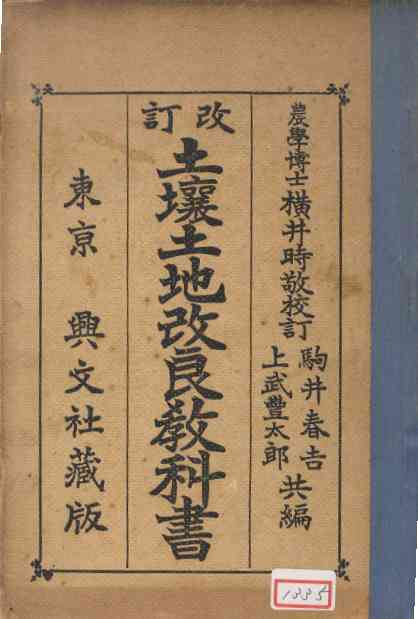 農學博士横井時敬校訂
駒井春吉
上武豐太郎
共編
改訂
土壤土地改良教科書
東京 興文社藏版
1335